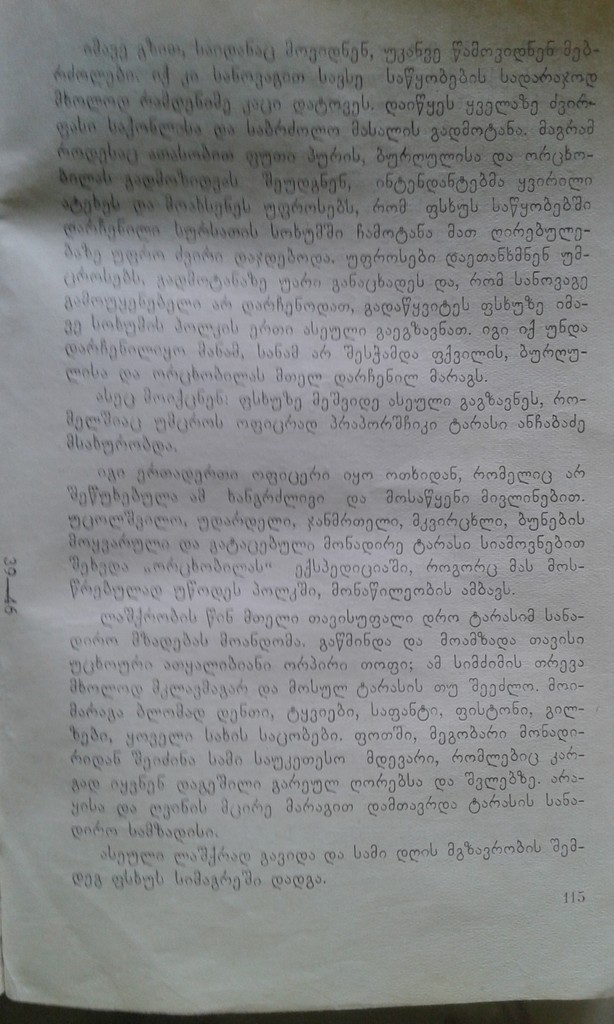 იმავე გზით, საიდანაც მოვიდნენ, უკანვე წამოვიდნენ მებ-
რძოლები. იქ კი სანოვაგით სავსე საწყობების სადარაჯოდ
მხოლოდ რამდენიმე კაცი დატოვეს. დაიწყეს ყველაზე ძვირ-
ფასი საქონლისა და საბრძოლო მასალის გადმოტანა. მაგრამ
როდესაც ათასობით ფუთი პურის, ბურღულისა და ორცხო-
ბილას გადმოზიდვას შეუდგნენ, ინტენდანტებმა ყვირილი
ატეხეს და მოახსენეს უფროსებს, რომ ფსხუს საწყობებში
დარჩენილი სურსათის სოხუმში ჩამოტანა მათ ღირებულე-
ბაზე უფრო ძვირი დაჯდებოდა. უფროსები დაეთანხმნენ უმ-
ცროსებს, გადმოტანაზე უარი განაცხადეს და, რომ სანოვაგე
გამოუყენებელი არ დარჩენოდათ, გადაწყვიტეს ფსხუზე იმა-
ვე სოხუმის პოლკის ერთი ასეული გაეგზავნათ. იგი იქ უნდა
დარჩენილიყო მანამ, სანამ არ შესჭამდა ფქვილის, ბურღუ-
ლისა და ორცხობილას მთელ დარჩენილ მარაგს.
ასეც მოიქცნენ: ფსხუზე მეშვიდე ასეული გაგზავნეს, რო-
მელშიაც უმცროს ოფიცრად პრაპორშჩიკი ტარასი ანჩაბაძე
მსახურობდა.
იგი ერთადერთი ოფიცერი იყო ოთხიდან, რომელიც არ
შეწუხებულა ამ ხანგრძლივი და მოსაწყენი მივლინებით.
უცოლშვილო, უდარდელი, ჯანმრთელი, მკვირცხლი, ბუნების
მოყვარული და გატაცებული მონადირე ტარასი სიამოვნებით
შეხვდა „ორცხობილას“ ექსპედიციაში, როგორც მას მოს-
წრებულად უწოდეს პოლკში, მონაწილეობის ამბავს.
ლაშქრობის წინ მთელი თავისუფალი დრო ტარასიმ სანა-
დირო მზადებას მოანდომა. გაწმინდა და მოამზადა თავისი
უცხოური ათყალიბიანი ორპირი თოფი; ამ სიმძიმის თრევა
მხოლოდ მკლავმაგარ და მოსულ ტარასის თუ შეეძლო. მოი-
მარაგა ბლომად დენთი, ტყვიები, საფანტი, ფისტონი, გილ-
ზები, ყოველი სახის საცობები. ფოთში, მეგობარი მონადი-
რიდან შეიძინა სამი საუკეთესო მდევარი, რომლებიც კარ-
გად იყვნენ დაგეშილი გარეულ ღორებსა და შვლებზე. არა-
ყისა და ღვინის მცირე მარაგით დამთავრდა ტარასის სანა-
დირო სამზადისი.
ასეული ლაშქრად გავიდა და სამი დღის მგზავრობის შემ-
დეგ ფსხუს სიმაგრეში დადგა.
115
39—46